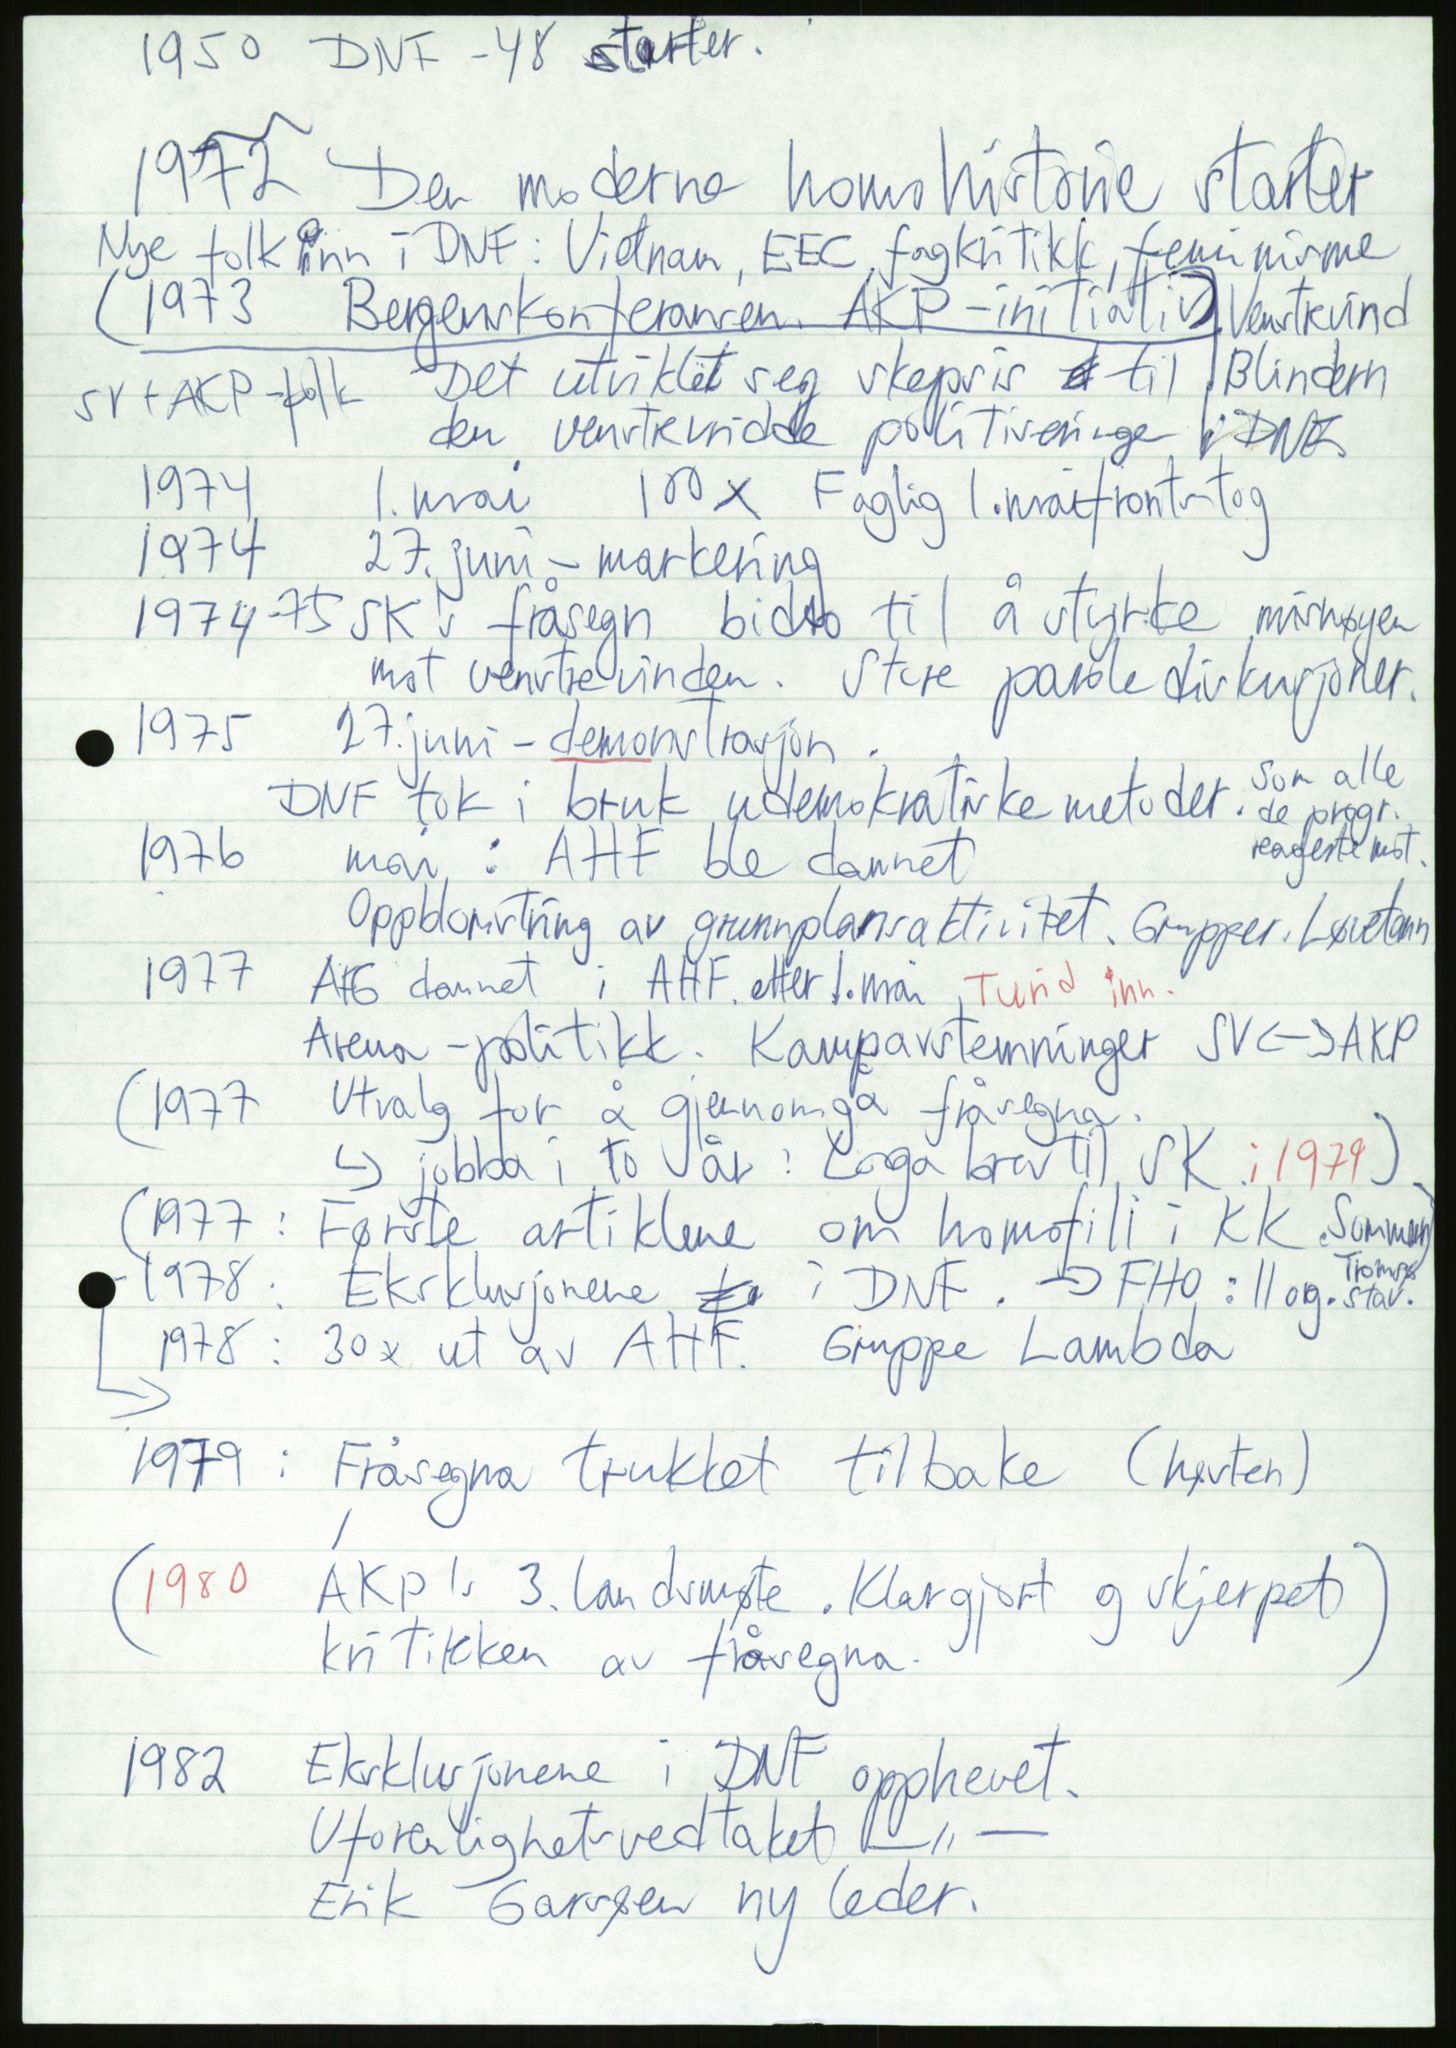 1950 DNF -48 starter.
1972 Den moderne homohistorie starter
Nye folk inn i DNF: Vietnam, EEC, fagkritikk, feminisme
(1973 Bergenskonferansen. AKP-initiativ) Venstrevind
SV + AKP-folk Det utviklet seg skepsis til Blindern
den venstrevridde politiseringen i DNF
1974 1. mai 100 x Faglig 1.maifronts tog
1974 27. juni - markering
1974-75 SK's fråsegn bidro til å styrke misnøyen
mot venstrevinden. Store parolediskusjoner.
1975 27. juni - demonstrasjon.
DNF tok i bruk udemokratiske metoder. som alle
de progr.
reagerte mot.
1976 mai: AHF ble dannet
Oppblomstring av grunnplansaktivitet. Grupper. Løvetann
1977 AHG dannet i AHF. etter 1. mai Turid inn.
Arena-politikk. Kampavstemninger SV <-> AKP
(1977 Utvalg for å gjennomgå fråsegna.
↳ jobba i to år: Laga brev til SK i 1979)
(1977: Første artiklene om homofili i KK. Sommeren)
1978: Eksklusjonene i DNF. → FHO: 11 og. Tromsø
Stav.
1978: 30 x ut av AHF. Gruppe Lambda
1979: Fråsegna trukket tilbake (høsten)
(1980 AKP's 3. landsmøte. Klargjort og skjerpet
kritikken av fråsegna.)
1982 Eksklusjonene i DNF opphevet.
Uforenlighetsvedtaket —"—
Erik Garsøen ny leder.